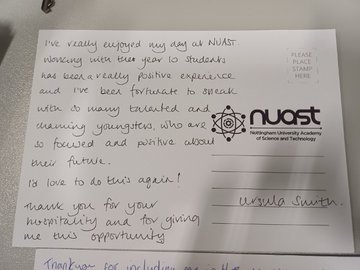 I've really enjoyed my day at NUAST.
Working with the year 10 students
has been a really positive experience
and I've been fortunate to speak
with so many talented and
charming youngsters, who are
so focused and positive about
their future.
I'd love to do this again!
Thank you for your
hospitality and for giving
me this opportunity
PLEASE
PLACE
STAMP
HERE
nuast
Nottingham University Academy
of Science and Technology
Ursula Smith.
Thankyou for including me